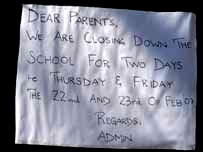 DEAR PARENTS,
WE ARE CLOSING DOWN THE
SCHOOL FOR TWO DAYS
ie THURSDAY & FRIDAY
THE 22nd AND 23rd OF FEB 07
REGARDS,
ADMIN